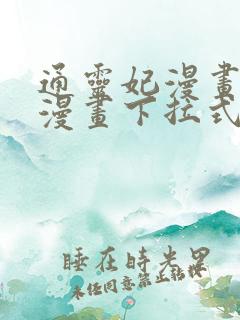 通靈妃漫畫
漫畫下拉式
睡在時光里
未经同意禁止转载